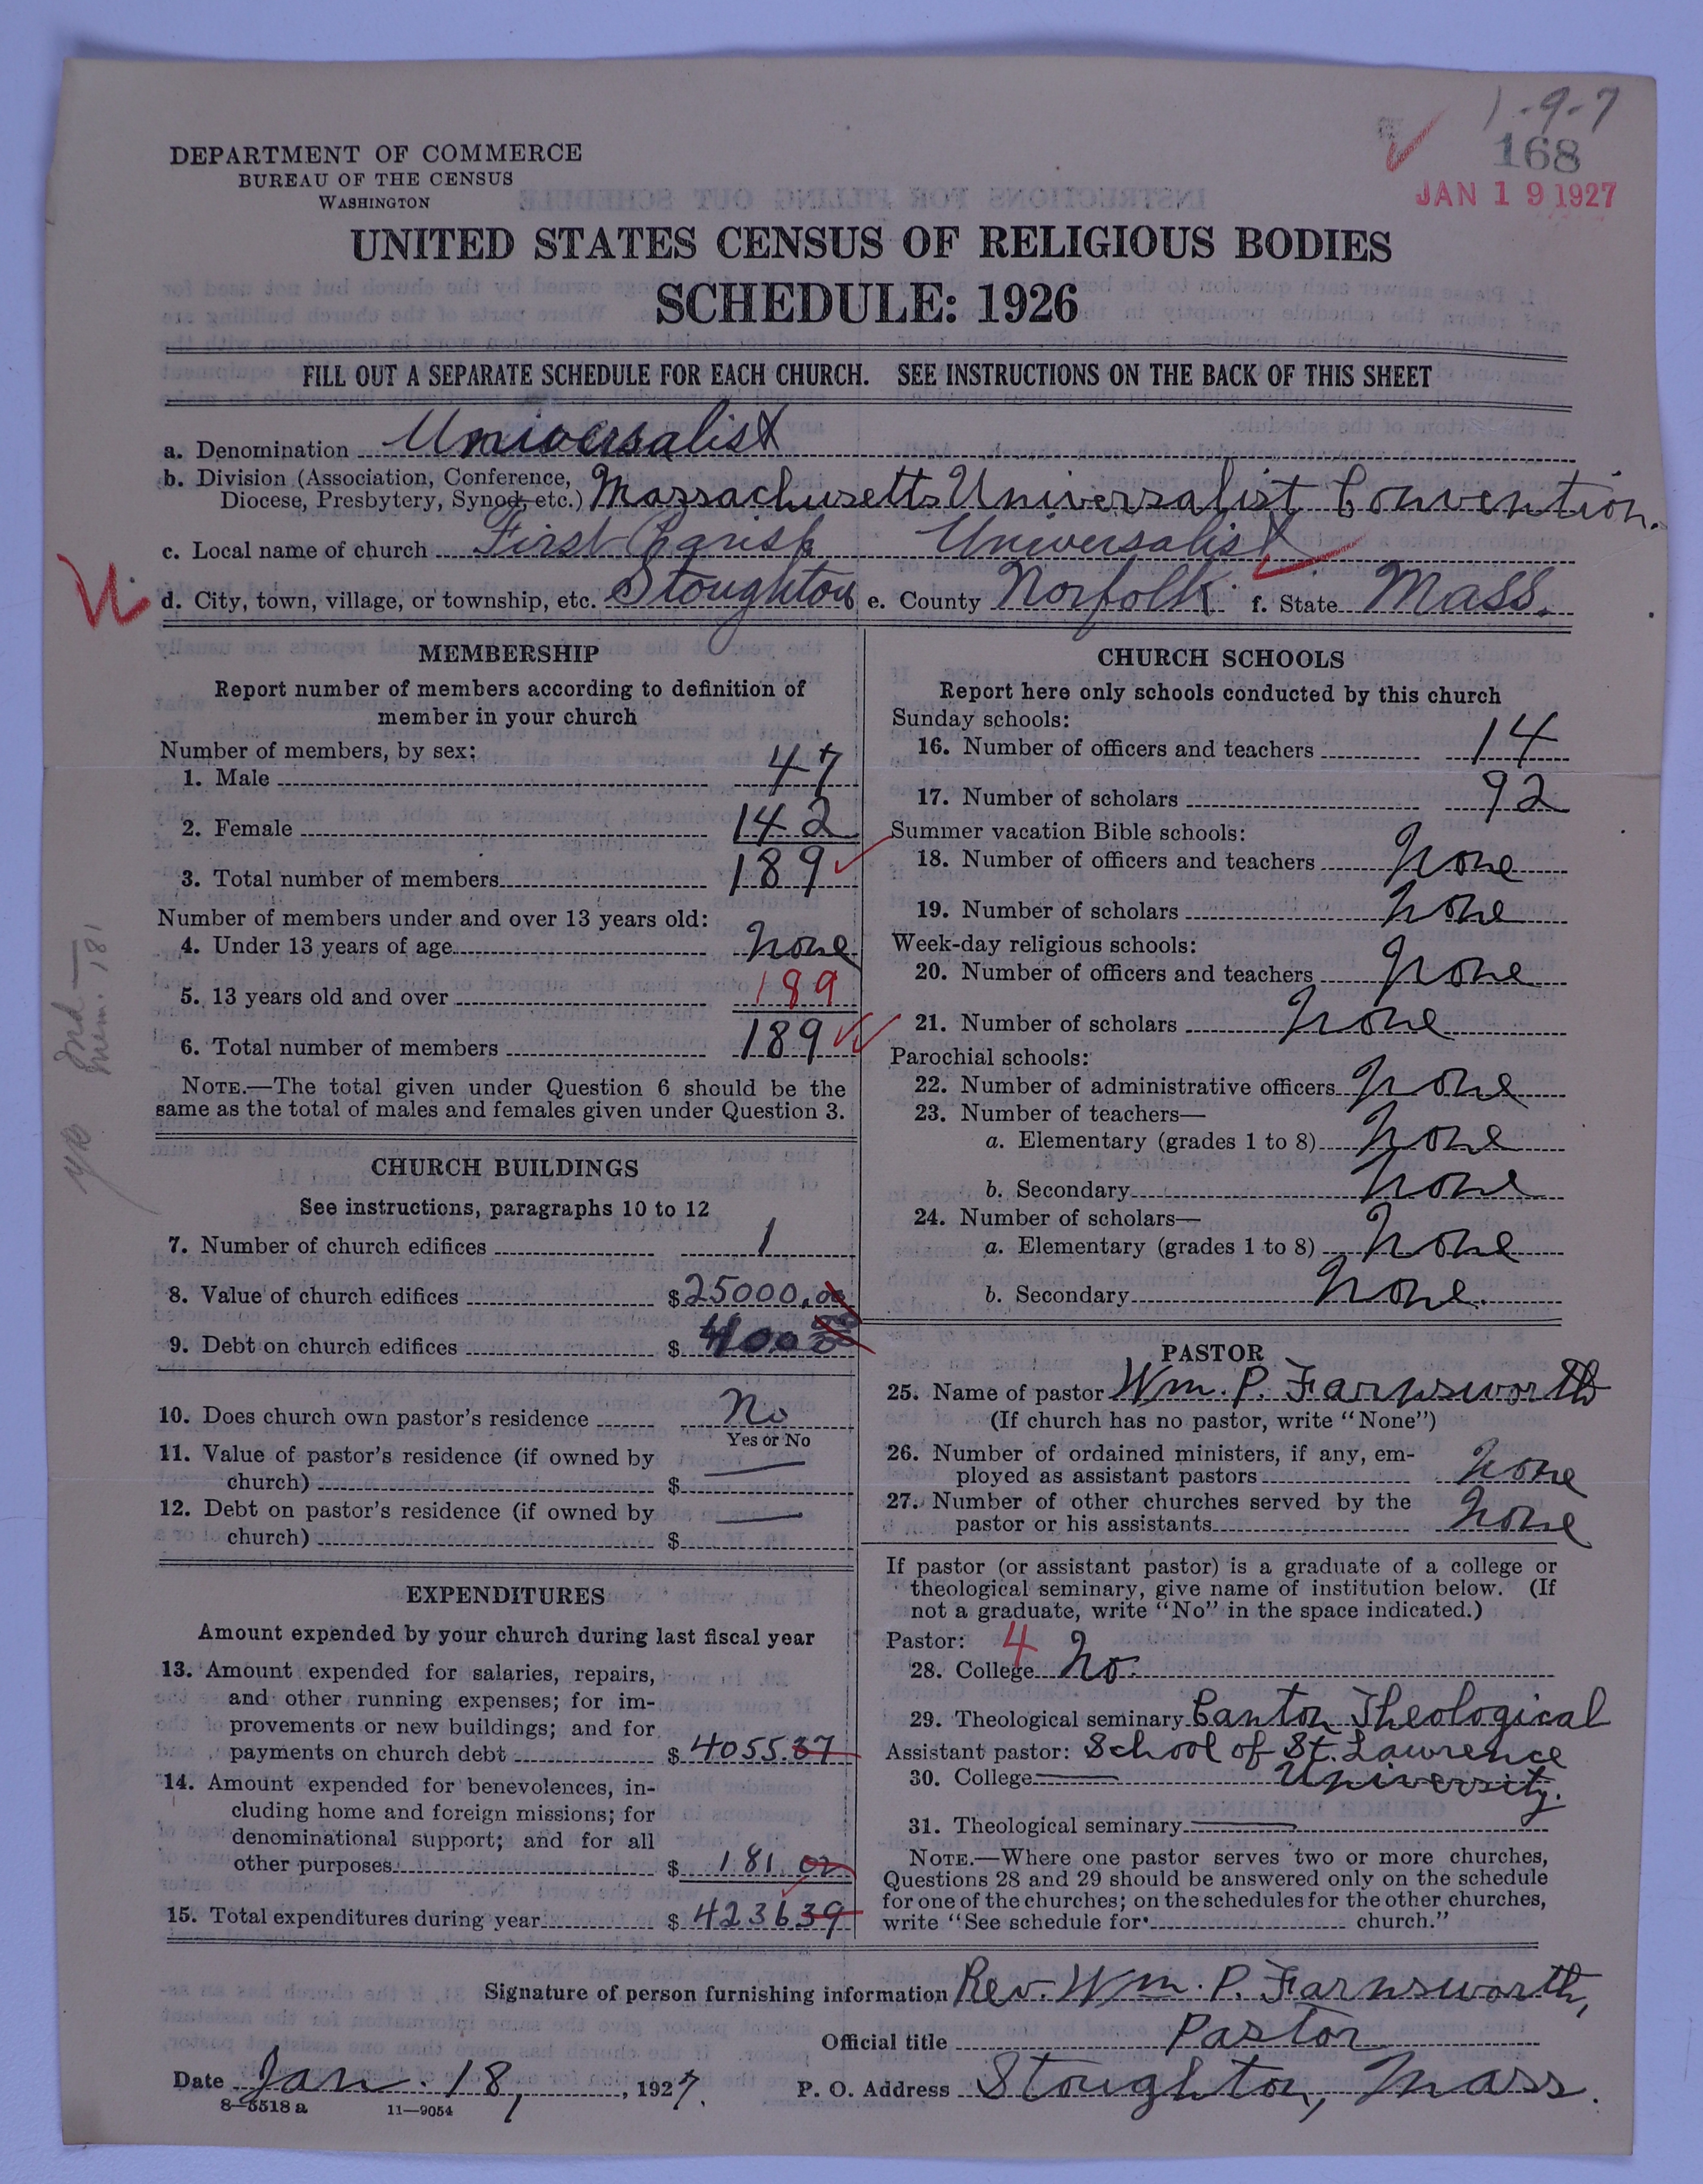 1-9-7
168
JAN 19 1927
DEPARTMENT OF COMMERCE
BUREAU OF THE CENSUS
WASHINGTON
UNITED STATES CENSUS OF RELIGIOUS BODIES
SCHEDULE: 1926
FILL OUT A SEPARATE SCHEDULE FOR EACH CHURCH. SEE INSTRUCTIONS ON THE BACK OF THIS SHEET
a. Denomination Universalist
b. Division (Association, Conference,
Diocese, Presbytery, Synod, etc.) Massachusetts Universalist Convention.
c. Local name of church First Parish Universalist
d. City, town, village, or township, etc. Stoughton e. County Norfolk f. State Mass.
MEMBERSHIP
Report number of members according to definition of
member in your church
Number of members, by sex:
1. Male 47
2. Female 142
3. Total number of members 189
Number of members under and over 13 years old:
4. Under 13 years of age None
5. 13 years old and over 189
6. Total number of members 189
NOTE.—The total given under Question 6 should be the
same as the total of males and females given under Question 3.
mem. 181
CHURCH BUILDINGS
See instructions, paragraphs 10 to 12
7. Number of church edifices 1
8. Value of church edifices $25000.00
9. Debt on church edifices $ 400
10. Does church own pastor's residence No
Yes or No
11. Value of pastor's residence (if owned by
church) $
12. Debt on pastor's residence (if owned by
church) $
EXPENDITURES
Amount expended by your church during last fiscal year
13. Amount expended for salaries, repairs,
and other running expenses; for im-
provements or new buildings; and for
payments on church debt $4055.37
14. Amount expended for benevolences, in-
cluding home and foreign missions; for
denominational support; and for all
other purposes $ 181 02
15. Total expenditures during year $423639
CHURCH SCHOOLS
Report here only schools conducted by this church
Sunday schools:
16. Number of officers and teachers 14
17. Number of scholars 92
Summer vacation Bible schools:
18. Number of officers and teachers None
19. Number of scholars None
Week-day religious schools:
20. Number of officers and teachers None
21. Number of scholars None
Parochial schools:
22. Number of administrative officers None
23. Number of teachers—
a. Elementary (grades 1 to 8) None
b. Secondary None
24. Number of scholars—
a. Elementary (grades 1 to 8) None
b. Secondary None.
PASTOR
25. Name of pastor Wm. P. Farnsworth
(If church has no pastor, write "None")
26. Number of ordained ministers, if any, em-
ployed as assistant pastors None
27. Number of other churches served by the
pastor or his assistants None
If pastor (or assistant pastor) is a graduate of a college or
theological seminary, give name of institution below. (If
not a graduate, write "No" in the space indicated.)
Pastor: 4
28. College No.
29. Theological seminary Canton Theological
Assistant pastor: School of St. Lawrence
30. College University.
31. Theological seminary
NOTE.—Where one pastor serves two or more churches,
Questions 28 and 29 should be answered only on the schedule
for one of the churches; on the schedules for the other churches,
write "See schedule for church."
Signature of person furnishing information Rev. Wm. P. Farnsworth,
Official title Pastor
Date Jan. 18, , 1927. P. O. Address Stoughton, Mass.
8-5518 a 11-9054